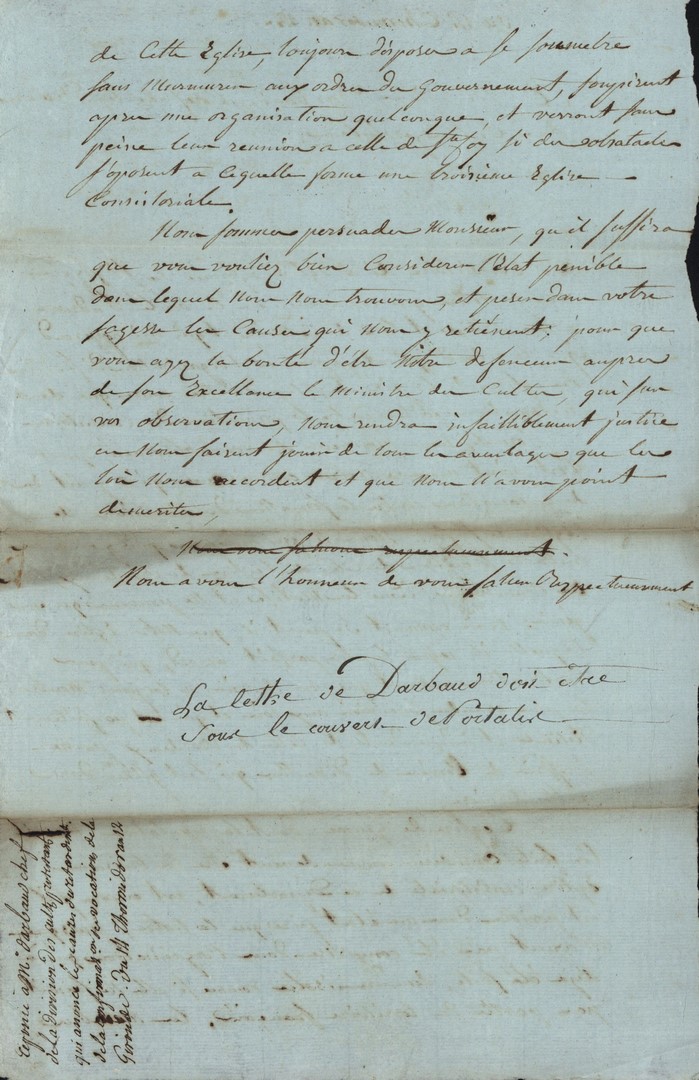 de Cette Eglise, toujours disposés a se soumettre
sans murmurer aux ordres du Gouvernement, soupirent
apres une organisation quelconque, et verront sans
peine leur reunion a celle de Ste foy si des obstacles
s'oposent a cequelle forme une troisieme Eglise
Consistoriale.
Nous sommes persuades Monsieur, qu'il suffira
que vous vouliez bien Considerer l'Etat penible
dans lequel Nous Nous trouvons, et peser dans votre
sagesse les Causes qui Nous y retienent; pour que
vous ayez la bonté d'être Notre defenseur aupres
de son Excellance le Ministre des Cultes, qui sur
vos observations, Nous rendra infailliblement justice
en Nous faisent jouir de tous les avantages que les
lois Nous accordent et que Nous N'avons point
démerités,
Nous vous saluons respectueusement.
Nous avons l'honneur de vous saluer Respectueusement
La lettre de Darbaud doit être
Sous le couvert de Portalis
à Mr. Darbaud chef
de la Division des cultes protestants
qui anonce les du retard
de la confirmation de la
Gironde. Du 14 thermidor an 12